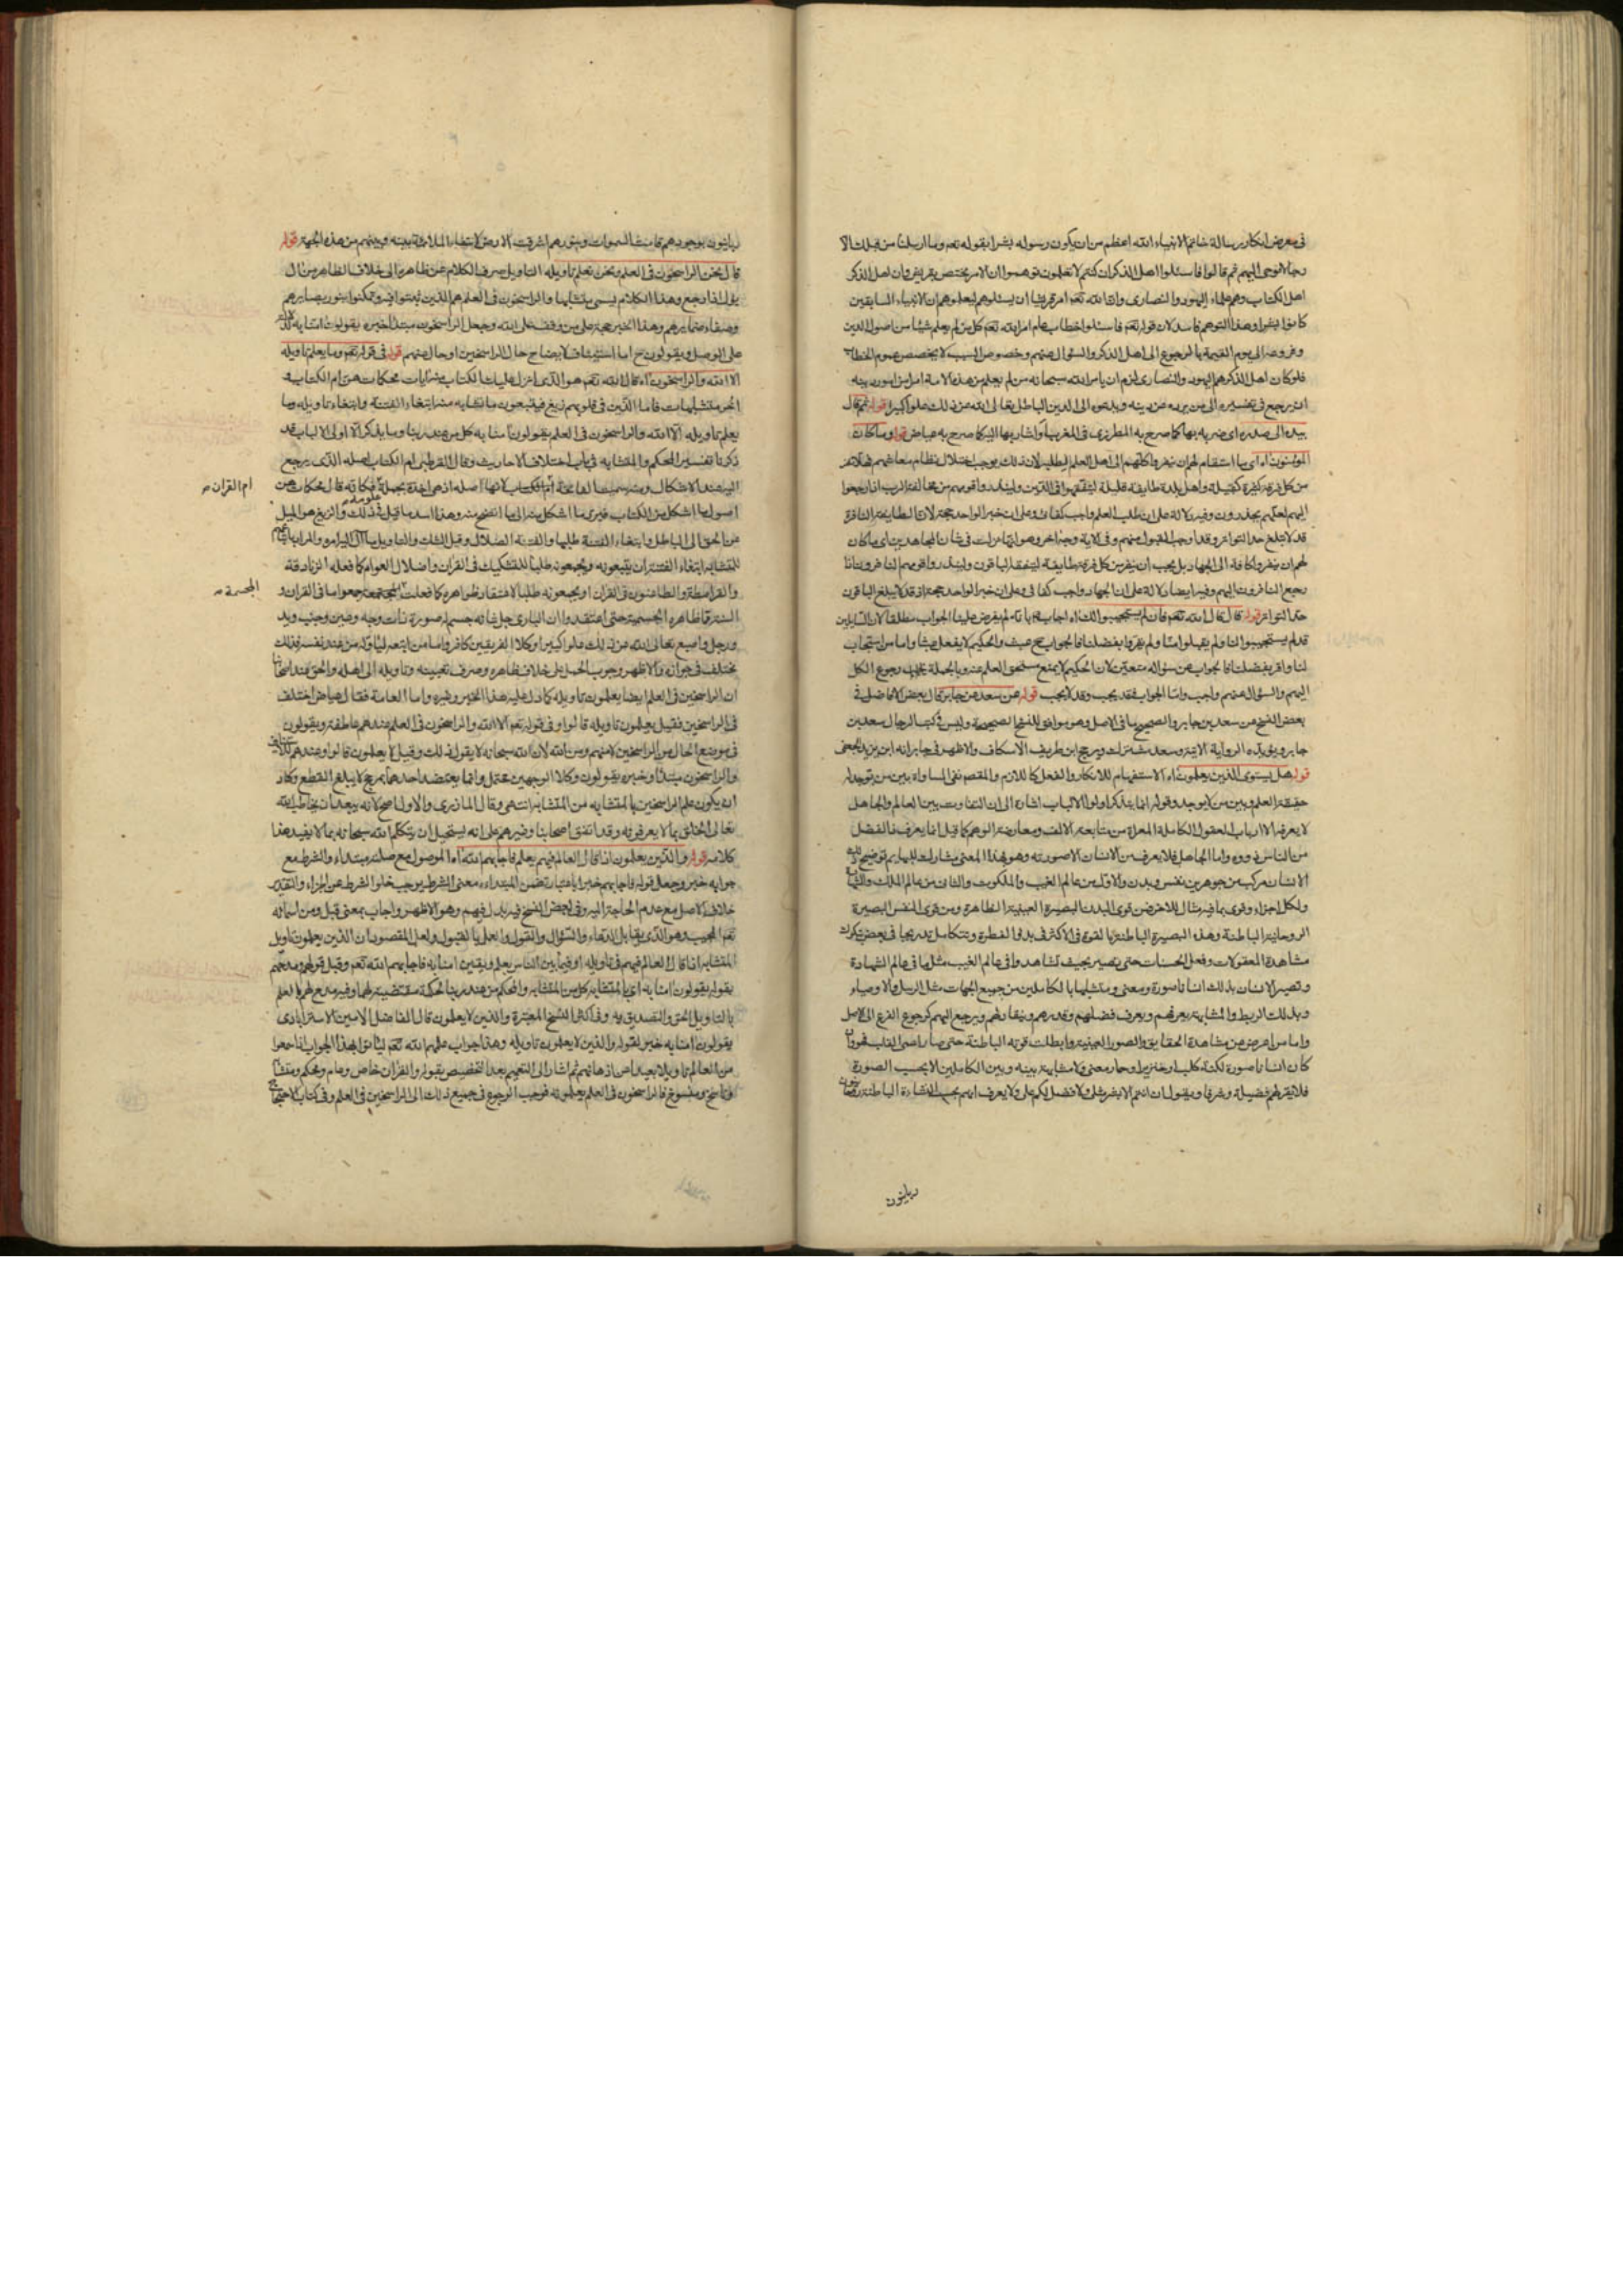 في معرض انكار رسالة خاتم الانبياء الله اعظم من ان يكون رسوله بشرا بقوله تعم وما ارسلنا من قبلك الا
رجالا نوحى اليهم ثم قالوا فاسئلوا اهل الذكر ان كنتم لا تعلمون توهموا ان الامر يختص بقريش وان اهل الذكر
اهل الكتاب وهم علماء اليهود والنصارى وانما الله تعم امر قريشا ان يسئلوهم ليعلموهم ان الانبياء السابقين
كانوا بشرا وهذا التوهم فاسد لان قوله تعم فاسئلوا خطاب عام امر الله تعم كل من لم يعلم شيئا من اصول الدين
وفروعه الى يوم القيمة بالرجوع الى اهل الذكر والسئوال عنهم وخصوص السبب لا يخصص عموم الخطاب
فلو كان اهل الذكر هم اليهود والنصارى لزم ان يامر الله سبحانه من لم يعلم من هذه الامة امرا من امور دينه
ان يرجع في تفسيره الى من يرده عن دينه ويدعوه الى الدين الباطل تعالى الله عن ذلك علوا كبيرا قوله ثم قال
بيده الى صدره اي ضربه بها كما صرح به المطرزى في المغرب او اشار بها اليه كما صرح به عياض قوله وما كان
المؤمنون اه اي ما استقام لهم ان ينفروا كلهم الى اهل العلم لطلبه لان ذلك يوجب اختلال نظام معاشهم فهلا نفر
من كل فرقة كثيرة كقبيلة واهل بلدة طايفة قليلة ليتفقهوا في الدين ولينذروا قومهم من مخالفة الرب اذا رجعوا
اليهم لعلهم يحذرون وفيه دلالة على ان طلب العلم واجب كفائى وعلى ان خبر الواحد حجة لان الطايفة النافرة
قد لا تبلغ حد التواتر وقد اوجب القبول منهم وفي الاية وجه اخر وهو انها نزلت في شان المجاهدين اي ما كان
لهم ان ينفروا كافة الى الجهاد بل يجب ان ينفر من كل فرقة طايفة ليتفقه الباقون ولينذروا قومهم النافرون اذا
رجع النافرون اليهم وفيه ايضا دلالة على ان الجهاد واجب كفائى وعلى ان خبر الواحد حجة اذ قد لا يبلغ الباقون
حد التواتر قوله قال قال الله تعم فان لم يستجيبوا لك اه اجاب بانه لم يفرض علينا الجواب مطلقا لان السايلين
قد لم يستجيبوا لنا ولم يقبلوا منا ولم يقروا بفضلنا فالجواب ح عبث والحكيم لا يفعل عبثا واما من استجاب
لنا واقر بفضلنا فالجواب عن سؤاله متعين لان الحكيم لا يمنع مستحق العلم عنه وبالجملة يجب رجوع الكل
اليهم والسؤال عنهم واجب واما الجواب فقد يجب وقد لا يجب قوله عن سعد عن جابر قال بعض الافاضل في
بعض النسخ عن سعد بن جابر والصحيح ما في الاصل وهو موافق للنسخ الصحيحة وليس في كتب الرجال سعد بن
جابر ويؤيده الرواية الاتية وسعد مشترك ويرجح ابن طريف الاسكاف والاظهر في جابر انه ابن يزيد الجعفى
قوله هل يستوى الذين يعلمون اه الاستفهام للانكار والفعل كاللازم والمقصود نفى المساواة بين من توجد له
حقيقة العلم وبين من لا يوجد وقوله انما يتذكر اولوا الالباب اشارة الى ان التفاوت بين العالم والجاهل
لا يعرفه الا ارباب العقول الكاملة المعراة من متابعة الالف ومعارضة الوهم كما قيل انما يعرف ذا الفضل
من الناس ذووه واما الجاهل فلا يعرف من الانسان الا صورته وهو بهذا المعنى يشارك البهايم توضيح ذلك
الانسان مركب من جوهرين نفس وبدن والاول من عالم الغيب والملكوت والثان من عالم الملك والشهادة
ولكل اجزاء وقوى بما فيه مثال للاخر فمن قوى البدن البصيرة العينية الظاهرة ومن قوى النفس البصيرة
الروحانية الباطنة وهذه البصيرة الباطنة بالقوة في الاكثر في بدو الفطرة وتتكامل تدريجا في بعض بتكرر
مشاهدة المعقولات وفعل الحسنات حتى تصير بحيث تشاهد وافي عالم الغيب مثل ما في عالم الشهادة
وتصير الانسان بذلك انسانا صورة ومعنى ومتشبها بالكاملين من جميع الجهات مثل الرسل والاوصياء
وبذلك الربط والمشابهة يعرفهم ويعرف فضلهم وقدرهم وينقاد لهم ويرجع اليهم كرجوع الفرع الى الاصل
واما من اعرض عن مشاهدة الحقايق والصور العينية وابطلت قوته الباطنة حتى صار اعمى القلب فهو وان
كان انسانا صورة لكنه كلب او خنزير او حمار معنى ولا مشابهة بينه وبين الكاملين الا بحسب الصورة
فلا يقر لهم فضيلة وشرفا ويقول ان انتم الا بشر مثلى ولا فضل لكم على ولا يعرف انهم بحسب النشاءة الباطنة
ربانيون
ربانيون بوجودهم قامت السموات وبنورهم اشرقت الارض لانتفاء الملائمة بينه وبينهم من هذه الجهة قوله
قال نحن الراسخون في العلم ونحن نعلم تاويله التاويل صرف الكلام عن ظاهره الى خلاف الظاهر من ال
يؤل اذا رجع وهذا الكلام يسمى متشابها والراسخون في العلم هم الذين ثبتوا فيه وتمكنوا بنور بصايرهم
وصفاء ضمايرهم وهذا الخبر حجة على من وقف على الله وجعل الراسخون مبتدأ خبره يقولون امنا به
على الوصل ويقولون ح اما استيناف لايضاح حال الراسخين او حال منهم قوله في قوله تعم وما يعلم تاويله
الا الله والراسخون اه قال الله تعم هو الذى انزل عليك الكتاب منه ايات محكمات هن ام الكتاب و
اخر متشابهات فاما الذين في قلوبهم زيغ فيتبعون ما تشابه منه ابتغاء الفتنة وابتغاء تاويله وما
يعلم تاويله الا الله والراسخون في العلم يقولون امنا به كل من عند ربنا وما يذكر الا اولى الالباب قد
ذكرنا تفسير المحكم والمتشابه في باب اختلاف الاحاديث وقال القرطبى ام الكتاب اصله الذى يرجع
اليه عند الاشكال ومنه سميت الفاتحة ام الكتاب لانها اصله اذ هي اخذة بجملة علومه فكانه قال محكمات هن
ام القران
اصول ما اشكل من الكتاب فيرد ما اشكل منه الى ما اتضح منه وهذا اسد ما قيل في ذلك والزيغ هو الميل
من الحق الى الباطل وابتغاء الفتنة طلبها والفتنة الضلال وقيل الشك والتاويل ما آل اليه امره والمراد
المتشابه ابتغاء الفتنة ان يتبعونه ويجمعونه طلبا للتشكيك في القران واضلال العوام كما فعله الزنادقة
والقرامطة والطاعنون في القران او يجمعونه طلبا لاعتقاد ظواهره كما فعلت المجسمة جمعوا ما في القران و
المجسمة
السنة مما ظاهره الجسمية حتى اعتقدوا ان البارى جل شانه جسم له صورة ذات وجه وعين وجنب ويد
ورجل واصبع تعالى الله عن ذلك علوا كبيرا وكلا الفريقين كافر واما من اتبعه ليأوله من عند نفسه فذلك
مختلف في جوازه والاظهر وجوب الحمل على خلاف ظاهره وصرف تعيينه وتاويله الى اهله والحق عند اصحابنا
ان الراسخين في العلم ايضا يعلمون تاويله كما دل عليه هذا الخبر وغيره واما العامة فقال عياض اختلف
في الراسخين فقيل يعلمون تاويله قالوا وفي قوله تعم الا الله والراسخون في العلم عندهم عاطفة ويقولون
في موضع الحال من الراسخين لا منهم ومن الله لان الله سبحانه لا يقول ذلك وقيل لا يعلمون قالوا وعندهم للاستيناف
والراسخون مبتدأ وخبره يقولون وكلا الوجهين محتمل وانما يعتضد احدهما بمرجح لا يبلغ القطع وكاد
ان يكون علم الراسخين بالمتشابه من المتشابه انتهى وقال المازرى والاول اصح لانه يبعد ان يخاطب الله
تعالى الخلق بما لا يعرفونه وقد اتفق اصحابنا وغيرهم على انه يستحيل ان يتكلم الله سبحانه بما لا يفيد هذا
كلامه قوله والذين يعلمون اذا قال العالم فيهم بعلم فاجابهم الله اه الموصول مع صلته مبتداء والشرط مع
جوابه خبر وجعل قوله فاجابهم خبرا باعتبار تضمن المبتداء معنى الشرط يوجب خلو الشرط عن الجزاء والتقدير
خلاف الاصل مع عدم الحاجة اليه وفي بعض النسخ فيه بدل فيهم وهو الاظهر واجاب بمعنى قبل ومن اسمائه
تعم المجيب وهو الذى يقابل الدعاء والسئوال والقول والعمل بالقبول ولعل المقصود ان الذين يعلمون تاويل
المتشابه اذا قال العالم فيهم في تاويله او فيما بين الناس بعلم ويقين امنا به فاجابهم الله تعم وقبل قولهم ومدحهم
بقوله يقولون امنا به اي بالمتشابه كل من المتشابه والمحكم من عند ربنا لحكمة مقتضية لهما وفيه مدح لهم بالعلم
بالتاويل الحق والتصديق به وفي اكثر النسخ المعتبرة والذين لا يعلمون قال الفاضل الامين الاسترابادى
يقولون امنا به خبر لقوله والذين لا يعلمون تاويله وهذا جواب علمهم الله تعم ليأتوا بهذا الجواب اذا سمعوا
من العالم تاويلا بعيدا عن اذهانهم ثم اشار الى التعميم بعد التخصيص بقوله والقران خاص وعام ومحكم ومتشابه
وناسخ ومنسوخ فالراسخون في العلم يعلمونه فوجب الرجوع في جميع ذلك الى الراسخين في العلم وفي كتاب الاحتجاج